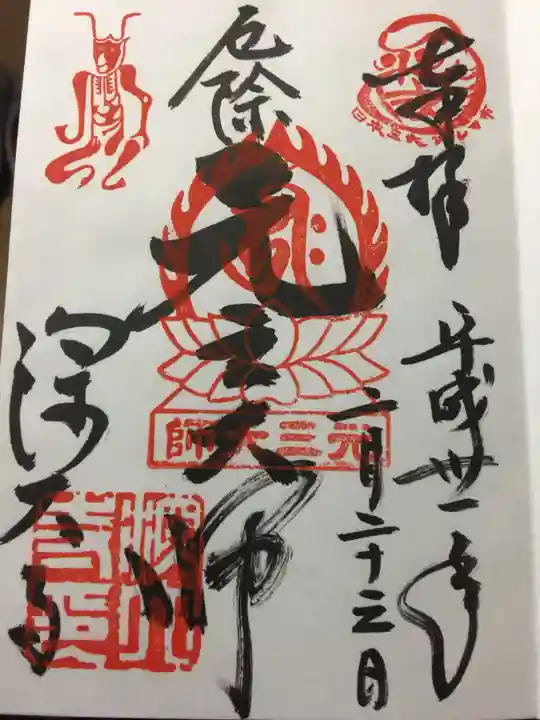 奉拝
平成卅一年
二月二十三日
厄除
元三大師
元三大師
深大寺